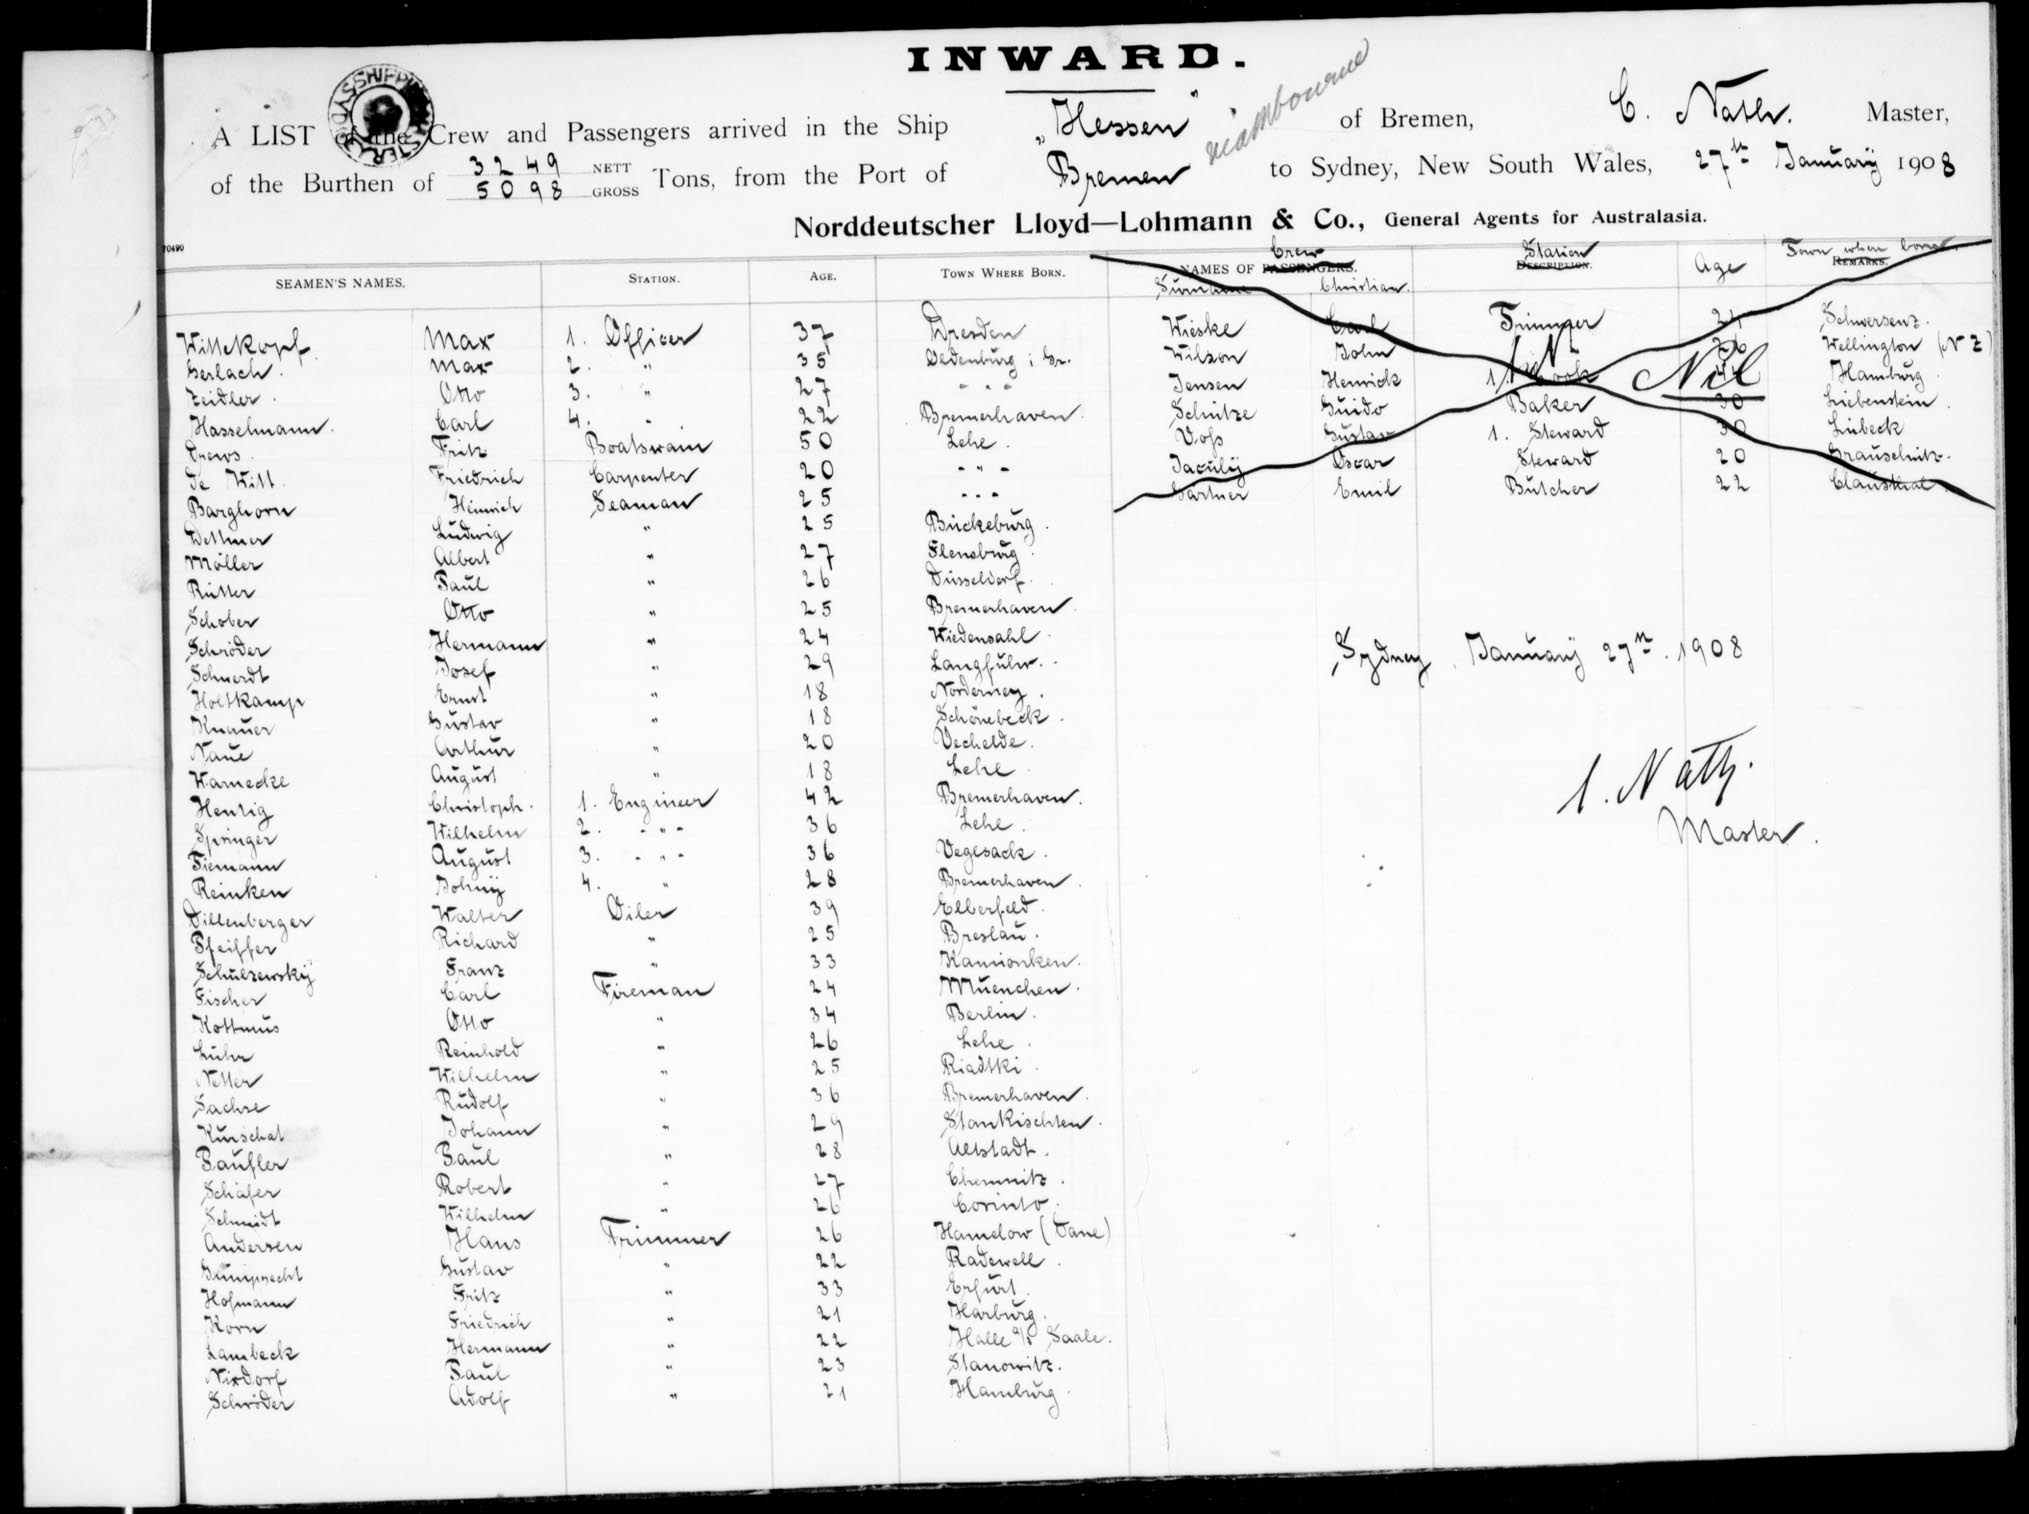 INWARD.
A LIST of the Crew and Passengers arrived in the Ship "Hessen" of Bremen, C. Nath. Master,
via Melbourne
of the Burthen of 3249 NETT 5098 GROSS Tons, from the Port of Bremen to Sydney, New South Wales, 27th January 1908
Norddeutscher Lloyd—Lohmann & Co., General Agents for Australasia.
70490
SEAMEN'S NAMES. STATION. AGE. TOWN WHERE BORN.
Wittekopf. Max 1. Officer 37 Dresden
Gerlach. Max 2. " 35 Oldenburg i. Gr.
Zeidler. Otto 3. " 27 - " -
Hasselmann. Carl 4. " 22 Bremerhaven.
Drews. Fritz Boatswain 50 Lehe.
de Witt. Friedrich Carpenter 20 - " -
Barghorn Heinrich Seaman 25 - " -
Dettmer Ludwig " 25 Bückeburg.
Möller Albert " 27 Flensburg.
Rütter Paul " 26 Düsseldorf.
Schober Otto " 25 Bremerhaven.
Schröder Hermann " 24 Wiedensahl.
Schmerdt Josef " 29 Langfuhr.
Holtkamp Ernst " 18 Norderney.
Knauer Gustav " 18 Schönebeck.
Naue Arthur " 20 Vechelde.
Warnecke August " 18 Lehe.
Hentig Christoph. 1. Engineer 42 Bremerhaven.
Springer Wilhelm 2. - " - 36 Lehe.
Tiemann August 3. - " - 36 Vegesack.
Reinken Johny 4. " 28 Bremerhaven.
Dillenberger Walter Oiler 39 Elberfeld.
Pfeiffer Richard " 25 Breslau.
Schulzewsky Franz " 33 Kamionken.
Fischer Carl Fireman 24 Muenchen.
Kottmus Otto " 34 Berlin.
Luhr Reinhold " 26 Lehe.
Netter Wilhelm " 25 Riadtki.
Sachse Rudolf " 36 Bremerhaven.
Kurschat Johann " 29 Stankischten.
Paufler Paul " 28 Altstadt.
Schäfer Robert " 27 Chemnitz.
Schmidt Wilhelm " 26 Corinto.
Andersen Hans Trimmer 26 Hamelow (Dane)
Gumprecht Gustav " 22 Radewell.
Hofmann Fritz " 33 Erfurt.
Korn Friedrich " 21 Harburg.
Lambeck Hermann " 22 Halle a/S Saale.
Nixdorf Paul " 23 Stanowitz.
Schröder Adolf " 21 Hamburg.
NAMES OF PASSENGERS. Crew DESCRIPTION. Station Age REMARKS. Town where born.
Surname Christian.
Wieske Carl Trimmer 24 Schwersenz.
Wilson John 26 Wellington (N Z)
Jensen Henrick 1. Cook Hamburg.
Schütze Guido Baker 30 Liebenstein.
Voss Gustav 1. Steward 30 Lübeck
Oscar Steward 20
Gärtner Emil Butcher 22 Clausthal.
Nil
Sydney, January 27th. 1908
C. Nath.
Master.